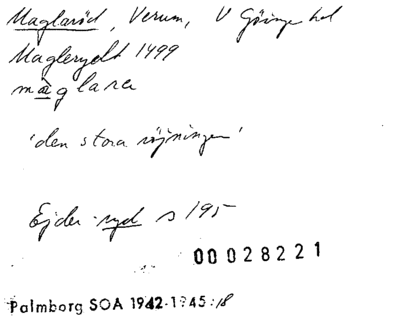 Maglaröd, Verum, V Göinge hd
Maglerydh 1499
màglara
'den stora röjningen'
Ejder-ryd s 195
00028221
Palmborg SOA 1942-1945:18